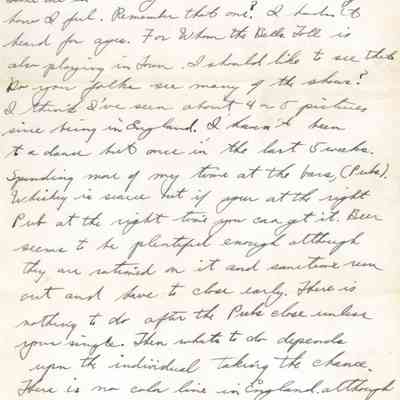 how I feel. Remember that one? I hadn't
heard for ages. For Whom the Bells Toll is
also playing in town. I should like to see that.
Do you folks see many of the shows?
I think I've seen about 4 or 5 pictures
since being in England. I haven't been
to a dance but once in the last 5 weeks.
Spending more of my time at the bars, (Pubs).
Whiskey is scarce but if your at the right
Pub at the right time you can get it. Beer
seems to be plentiful enough although
they are rationed on it and sometimes run
out and have to close early. There is
nothing to do after the Pubs close unless
your single. Then whats to do depends
upon the individual taking the chance.
There is no color line in England. although